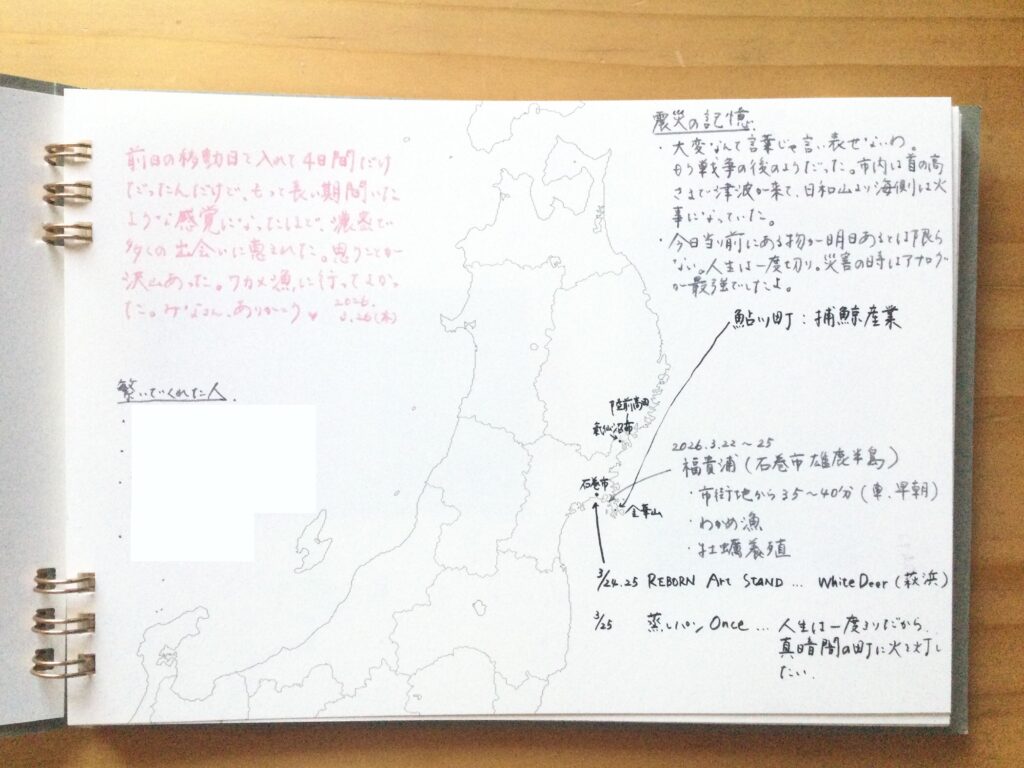 前日の移動日で入れて4日間だけ
だったんだけど、もっと長い期間いた
ような感覚になったほどで、濃密で
多くの出会いに恵まれた。思うことが
沢山あった。ワカメ漁に行ってよかっ
た。みなさん、ありがとう♥
2026.
3.26(木)
繋いでくれた人
震災の記憶
・大変なんて言葉じゃ言い表せないわ。
もう戦争の後のようだった。市内は首の高
さまで津波が来て、日和山より海側は火
事になっていた。
・今日当り前にある物が明日あるとは限ら
ない。人生は一度切り。災害の時はアナログ
が最強でしたよ。
鮎川町：捕鯨産業
陸前高田
気仙沼市
石巻市
金華山
2026.3.22～25
福貴浦(石巻市雄鹿半島)
・市街地から35～40分(車、早朝)
・わかめ漁
・牡蠣養殖
3/24.25 REBORN Art STAND … White Deer (荻浜)
3/25 蒸しパン Once … 人生は一度きりだから
真暗闇の町に火を灯し
たい.